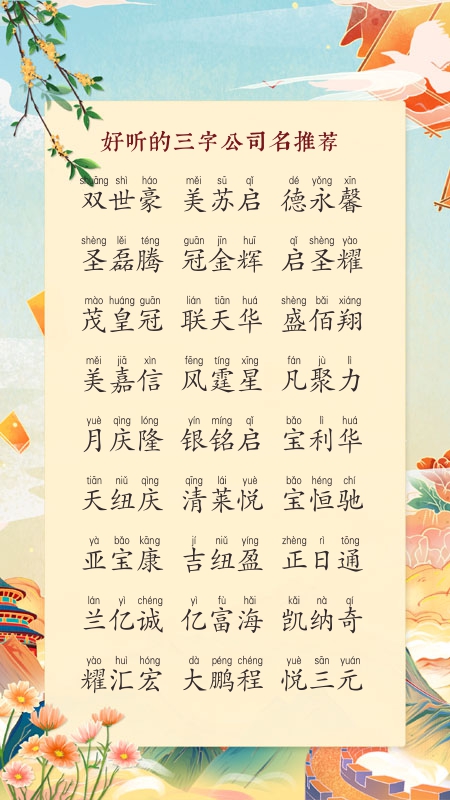 好听的三字公司名推荐
shuāng shì háo měi sū qǐ dé yǒng xīn
双世豪 美苏启 德永馨
shèng lěi téng guān jīn huī qǐ shèng yào
圣磊腾 冠金辉 启圣耀
mào huáng guān lián tiān huá shèng bǎi xiáng
茂皇冠 联天华 盛佰翔
měi jiā xìn fēng tíng xīng fán jù lì
美嘉信 风霆星 凡聚力
yuè qìng lóng yín míng qǐ bǎo lì huá
月庆隆 银铭启 宝利华
tiān niǔ qìng qīng lái yuè bǎo héng chí
天纽庆 清莱悦 宝恒驰
yà bǎo kāng jí niǔ yíng zhèng rì tōng
亚宝康 吉纽盈 正日通
lán yì chéng yì fù hǎi kǎi nà qí
兰亿诚 亿富海 凯纳奇
yào huì hóng dà péng chéng yuè sān yuán
耀汇宏 大鹏程 悦三元